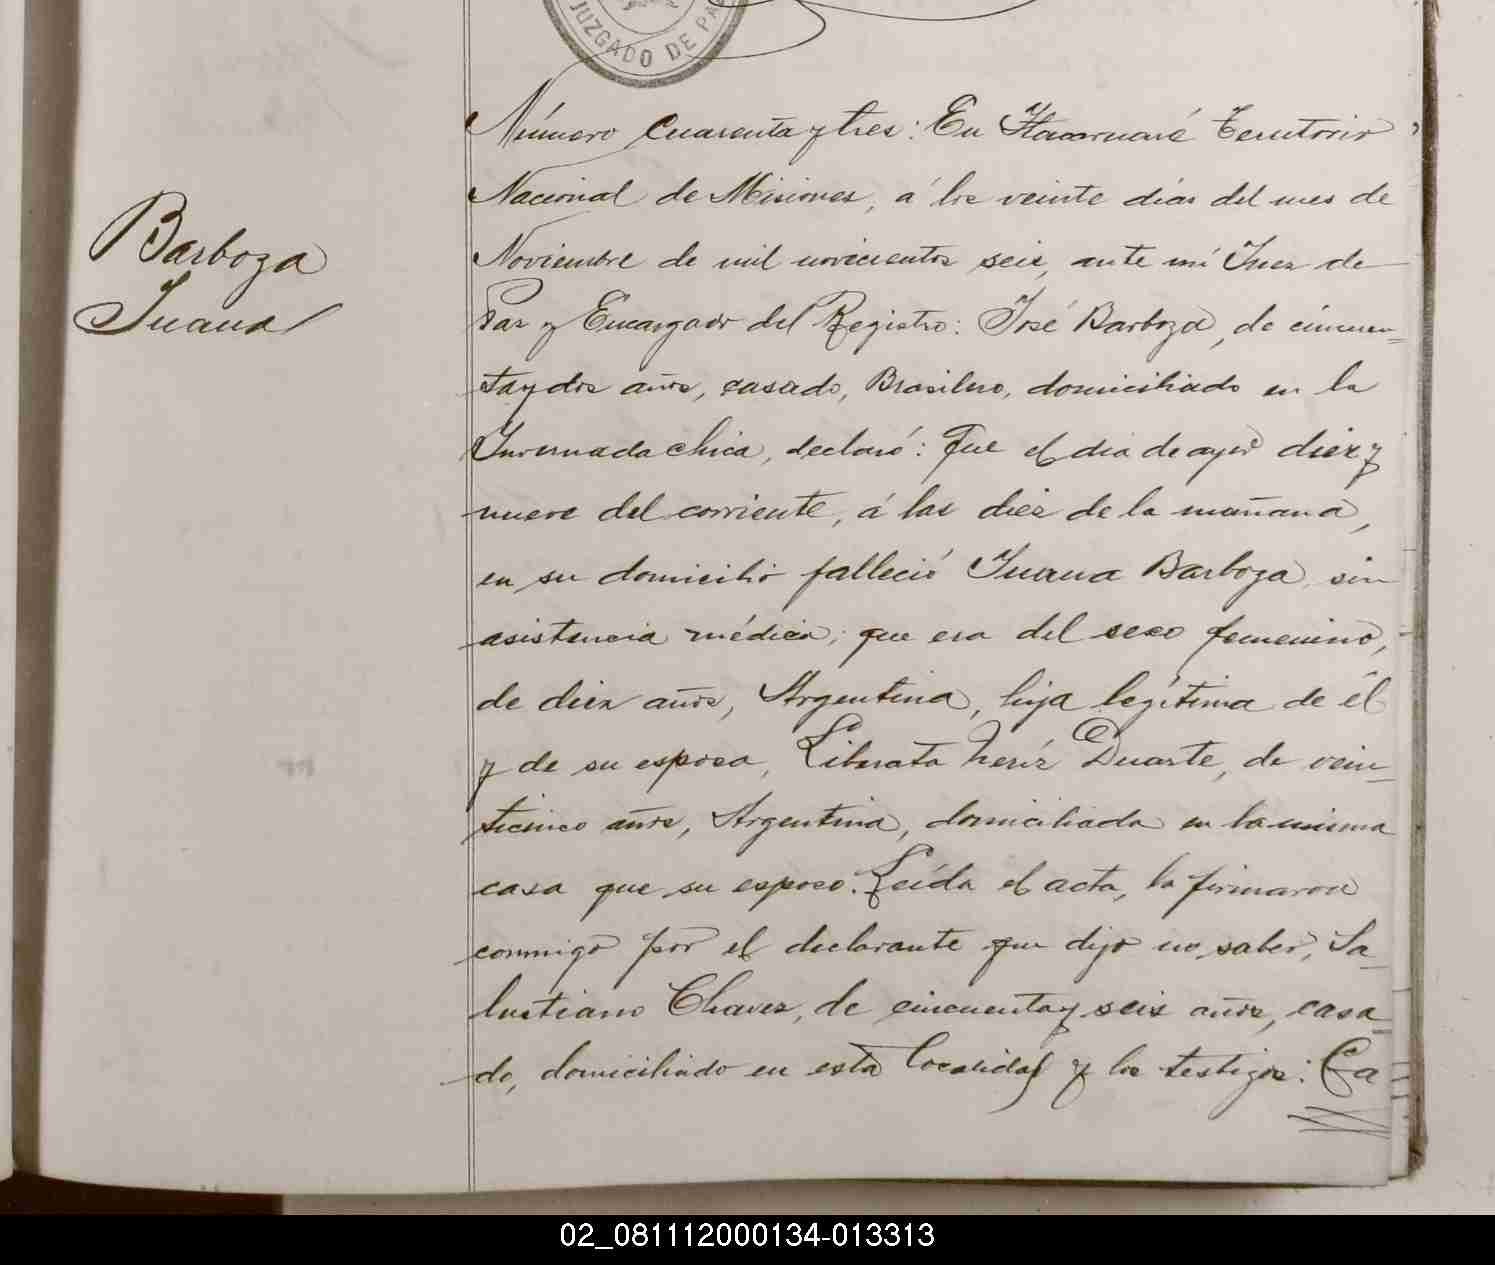 JUZGADO DE PA
Número cuarenta y tres: En Itacaruaré Territorio
Nacional de Misiones, á los veinte días del mes de
Barboza
Juana
Noviembre de mil novecientos seis, ante mí Juez de
Paz y Encargado del Registro: José Barboza, de cincuen=
ta y dos años, casado, Brasilero, domiciliado en la
Invernada chica, declaró: Que el dia de ayer diez y
nueve del corriente, á las diez de la mañana,
en su domicilio falleció Juana Barboza, sin
asistencia médica; que era del sexo femenino,
de diez años, Argentina, hija legítima de él
y de su esposa, Liberata Duarte, de vein=
ticinco años, Argentina, domiciliada en la misma
casa que su esposo. Leída el acta, la firmaron
conmigo por el declarante que dijo no saber, Sa=
lustiano Chavez, de cincuenta y seis años, casa=
do, domiciliado en esta localidad y los testigos: Ca
02_081112000134-013313